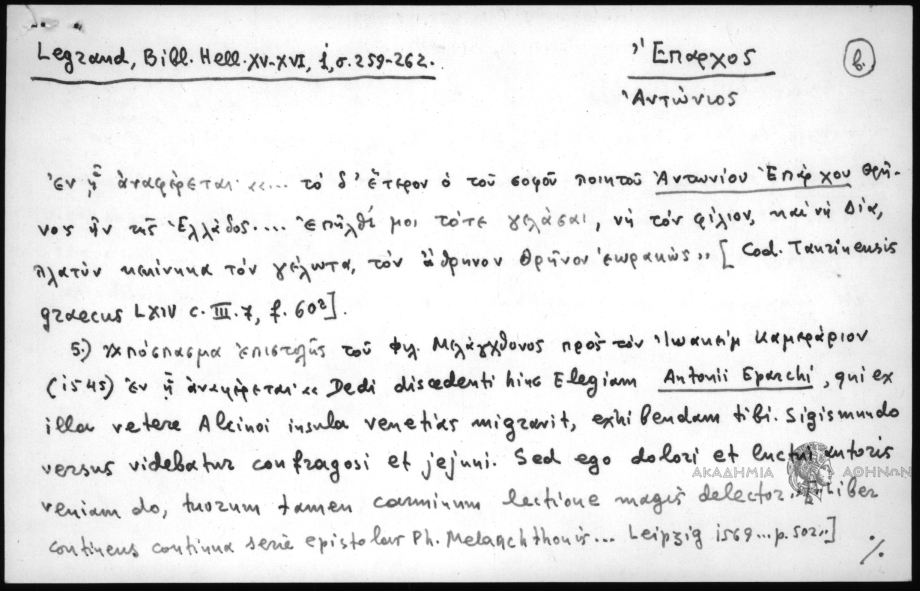 Legrand, Bill. Hell. XV-XVI, i, σ. 259-262.
Ἔπαρχος
β.
Ἀντώνιος
ἐν ᾗ ἀναφέρεται· «... τὸ δ' ἕτερον ὁ τοῦ σοφοῦ ποιητοῦ Ἀντωνίου Ἐπάρχου θρῆ-
νος ἦν τῆς Ἑλλάδος.... Ἐπῆλθέ μοι τότε γελάσαι, νὴ τὸν φίλιον, καὶ νὴ Δία,
πλατὺν κεκίνηκα τὸν γέλωτα, τὸν ἄθρηνον θρῆνον ἑωρακώς» [Cod. Taurinensis
graecus LXIV c. III. 7, f. 60²].
5.) Ἀπόσπασμα ἐπιστολῆς τοῦ Φιλ. Μελάγχθονος πρὸς τὸν Ἰωακεὶμ Καμεράριον
(1545) ἐν ᾗ ἀναφέρεται· « Dedi discedenti hinc Elegiam Antonii Eparchi, qui ex
illa vetere Alcinoi insula venetias migravit, exhibendam tibi. Sigismundo
versus videbatur confragosi et jejuni. Sed ego dolori et luctui autoris
veniam do, tuorum tamen carminum lectione magis delector» [Liber
continens continua serie epistolas Ph. Melanchthonis... Leipzig 1569... p. 502»]
%
ΑΚΑΔΗΜΙΑ ΑΘΗΝΩΝ